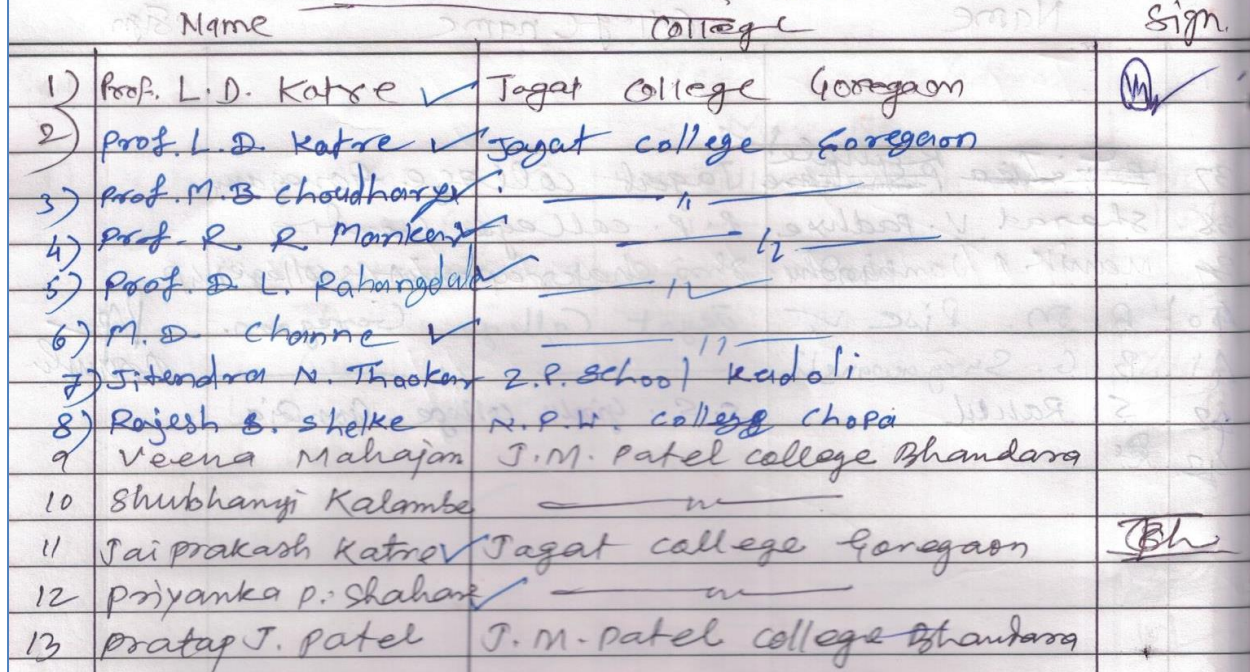 Name College Sign.
1) Prof. L.D. Katre Jagat College Goregaon
2) Prof. L.D. Katre Jagat college Goregaon
3) Prof. M.B Choudhary — " —
4) Prof. R R Mankar — " —
5) Prof. D. L. Pahangdale — " —
6) M. D. Channe — " —
7) Jitendra N. Thaokar Z.P. School Kadoli
8) Rajesh S. Shelke N.P.W. college Chopa
9 Veena Mahajan J.M. Patel college Bhandara
10 Shubhangi Kalambe — " —
11 Jaiprakash Katre Jagat college Goregaon
12 Priyanka P. Shahare — " —
13 Pratap J. Patel J.M. Patel college Bhandara